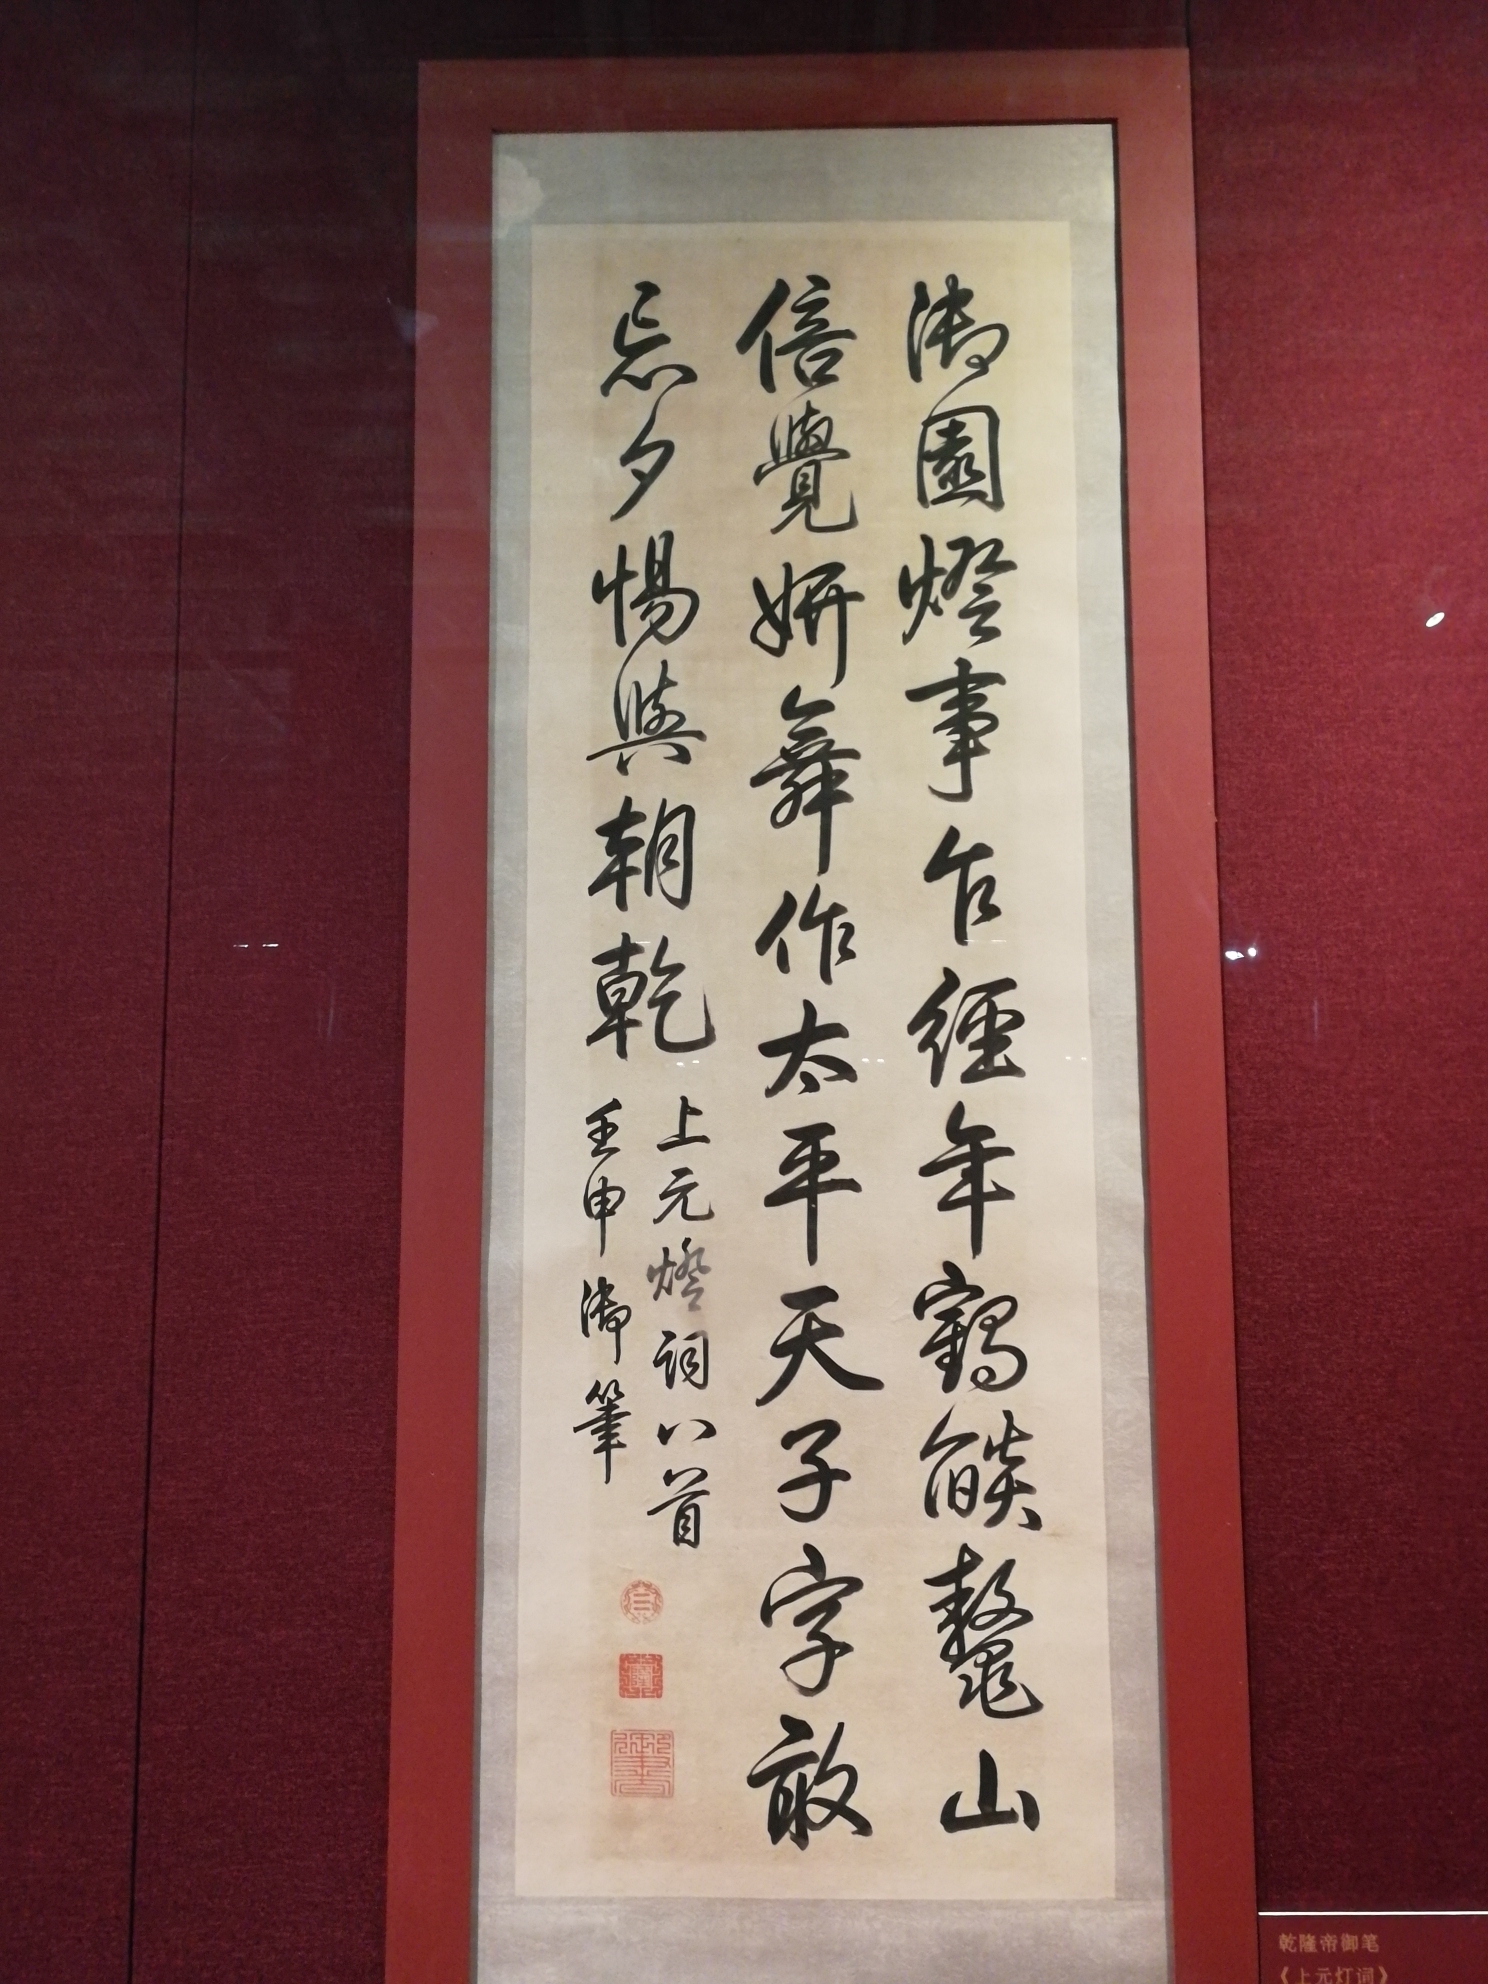 御園燈事乍經年鶴燄鼇山
倍覺妍舞作太平天子字敢
忘夕惕與朝乾
上元燈詞八首
壬申御筆
乾隆帝御笔
《上元灯词》